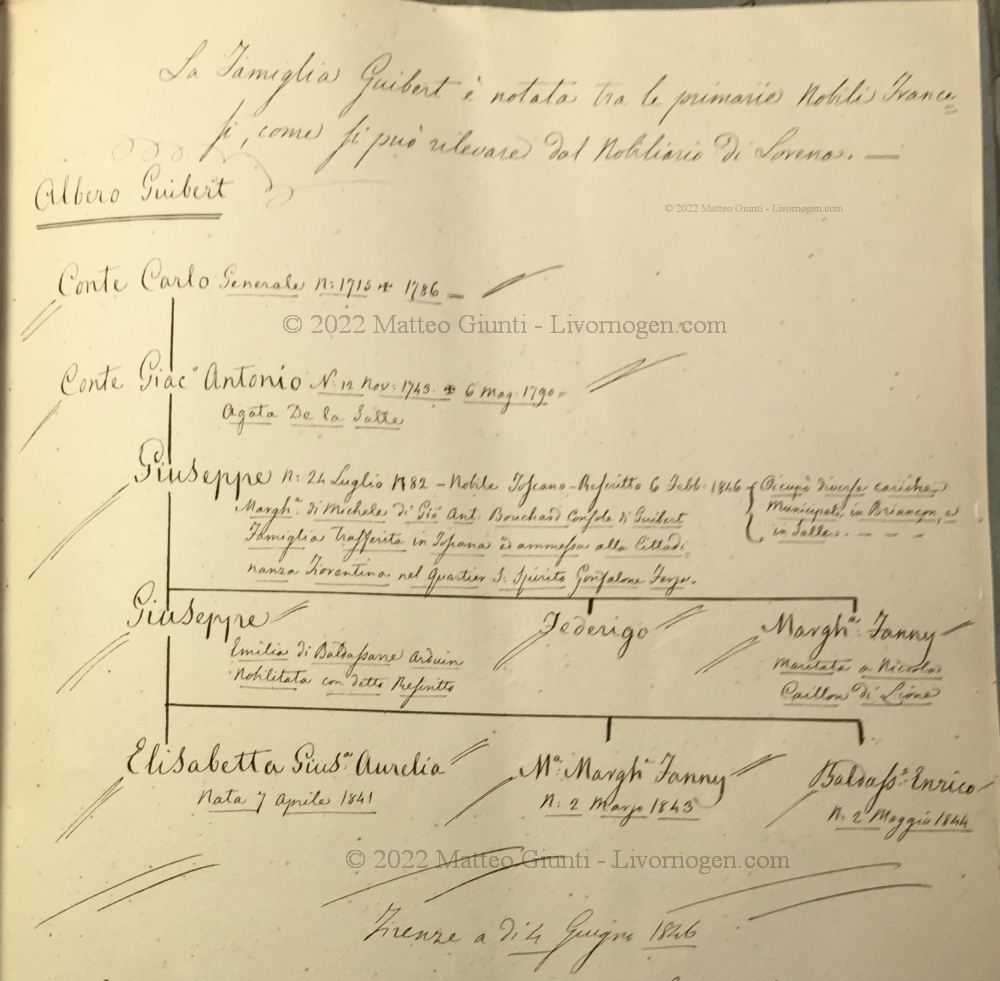 La Famiglia Guibert è notata tra le primarie Nobili France=
si, come si può rilevare dal Nobiliario di Lorena. —
Albero Guibert
© 2022 Matteo Giunti - Livornogen.com
Conte Carlo Generale n: 1715 + 1786
© 2022 Matteo Giunti - Livornogen.com
Conte Giac° Antonio N. 12 Nov: 1743. + 6 Mag: 1790
Agata De la Salle
Giuseppe n: 24 Luglio 1782 - Nobile Toscano - Rescritto 6 Febb: 1846
Occupò diverse cariche
Municipali, in Briançon, e
in Salle.
Margh.a di Michele di Gio Ant: Bouchard Console di Guibert
Famiglia trasferita in Toscana ed ammessa alla Cittadi:
nanza Fiorentina nel Quartier S: Spirito Gonfalone Ferza.
Giuseppe
Federigo
Margh.a Fanny
Emilia di Baldassarre Arduin
Nobilitata con detto Rescritto
Maritata a Niccola
Caillon di Lione
Elisabetta Gius.a Aurelia
Mª Marghª Fanny
Baldass.e Enrico
Nata 7 Aprile 1841
N: 2 Marzo 1843
N. 2 Maggio 1844
© 2022 Matteo Giunti - Livornogen.com
Firenze a dì 4 Giugno 1846